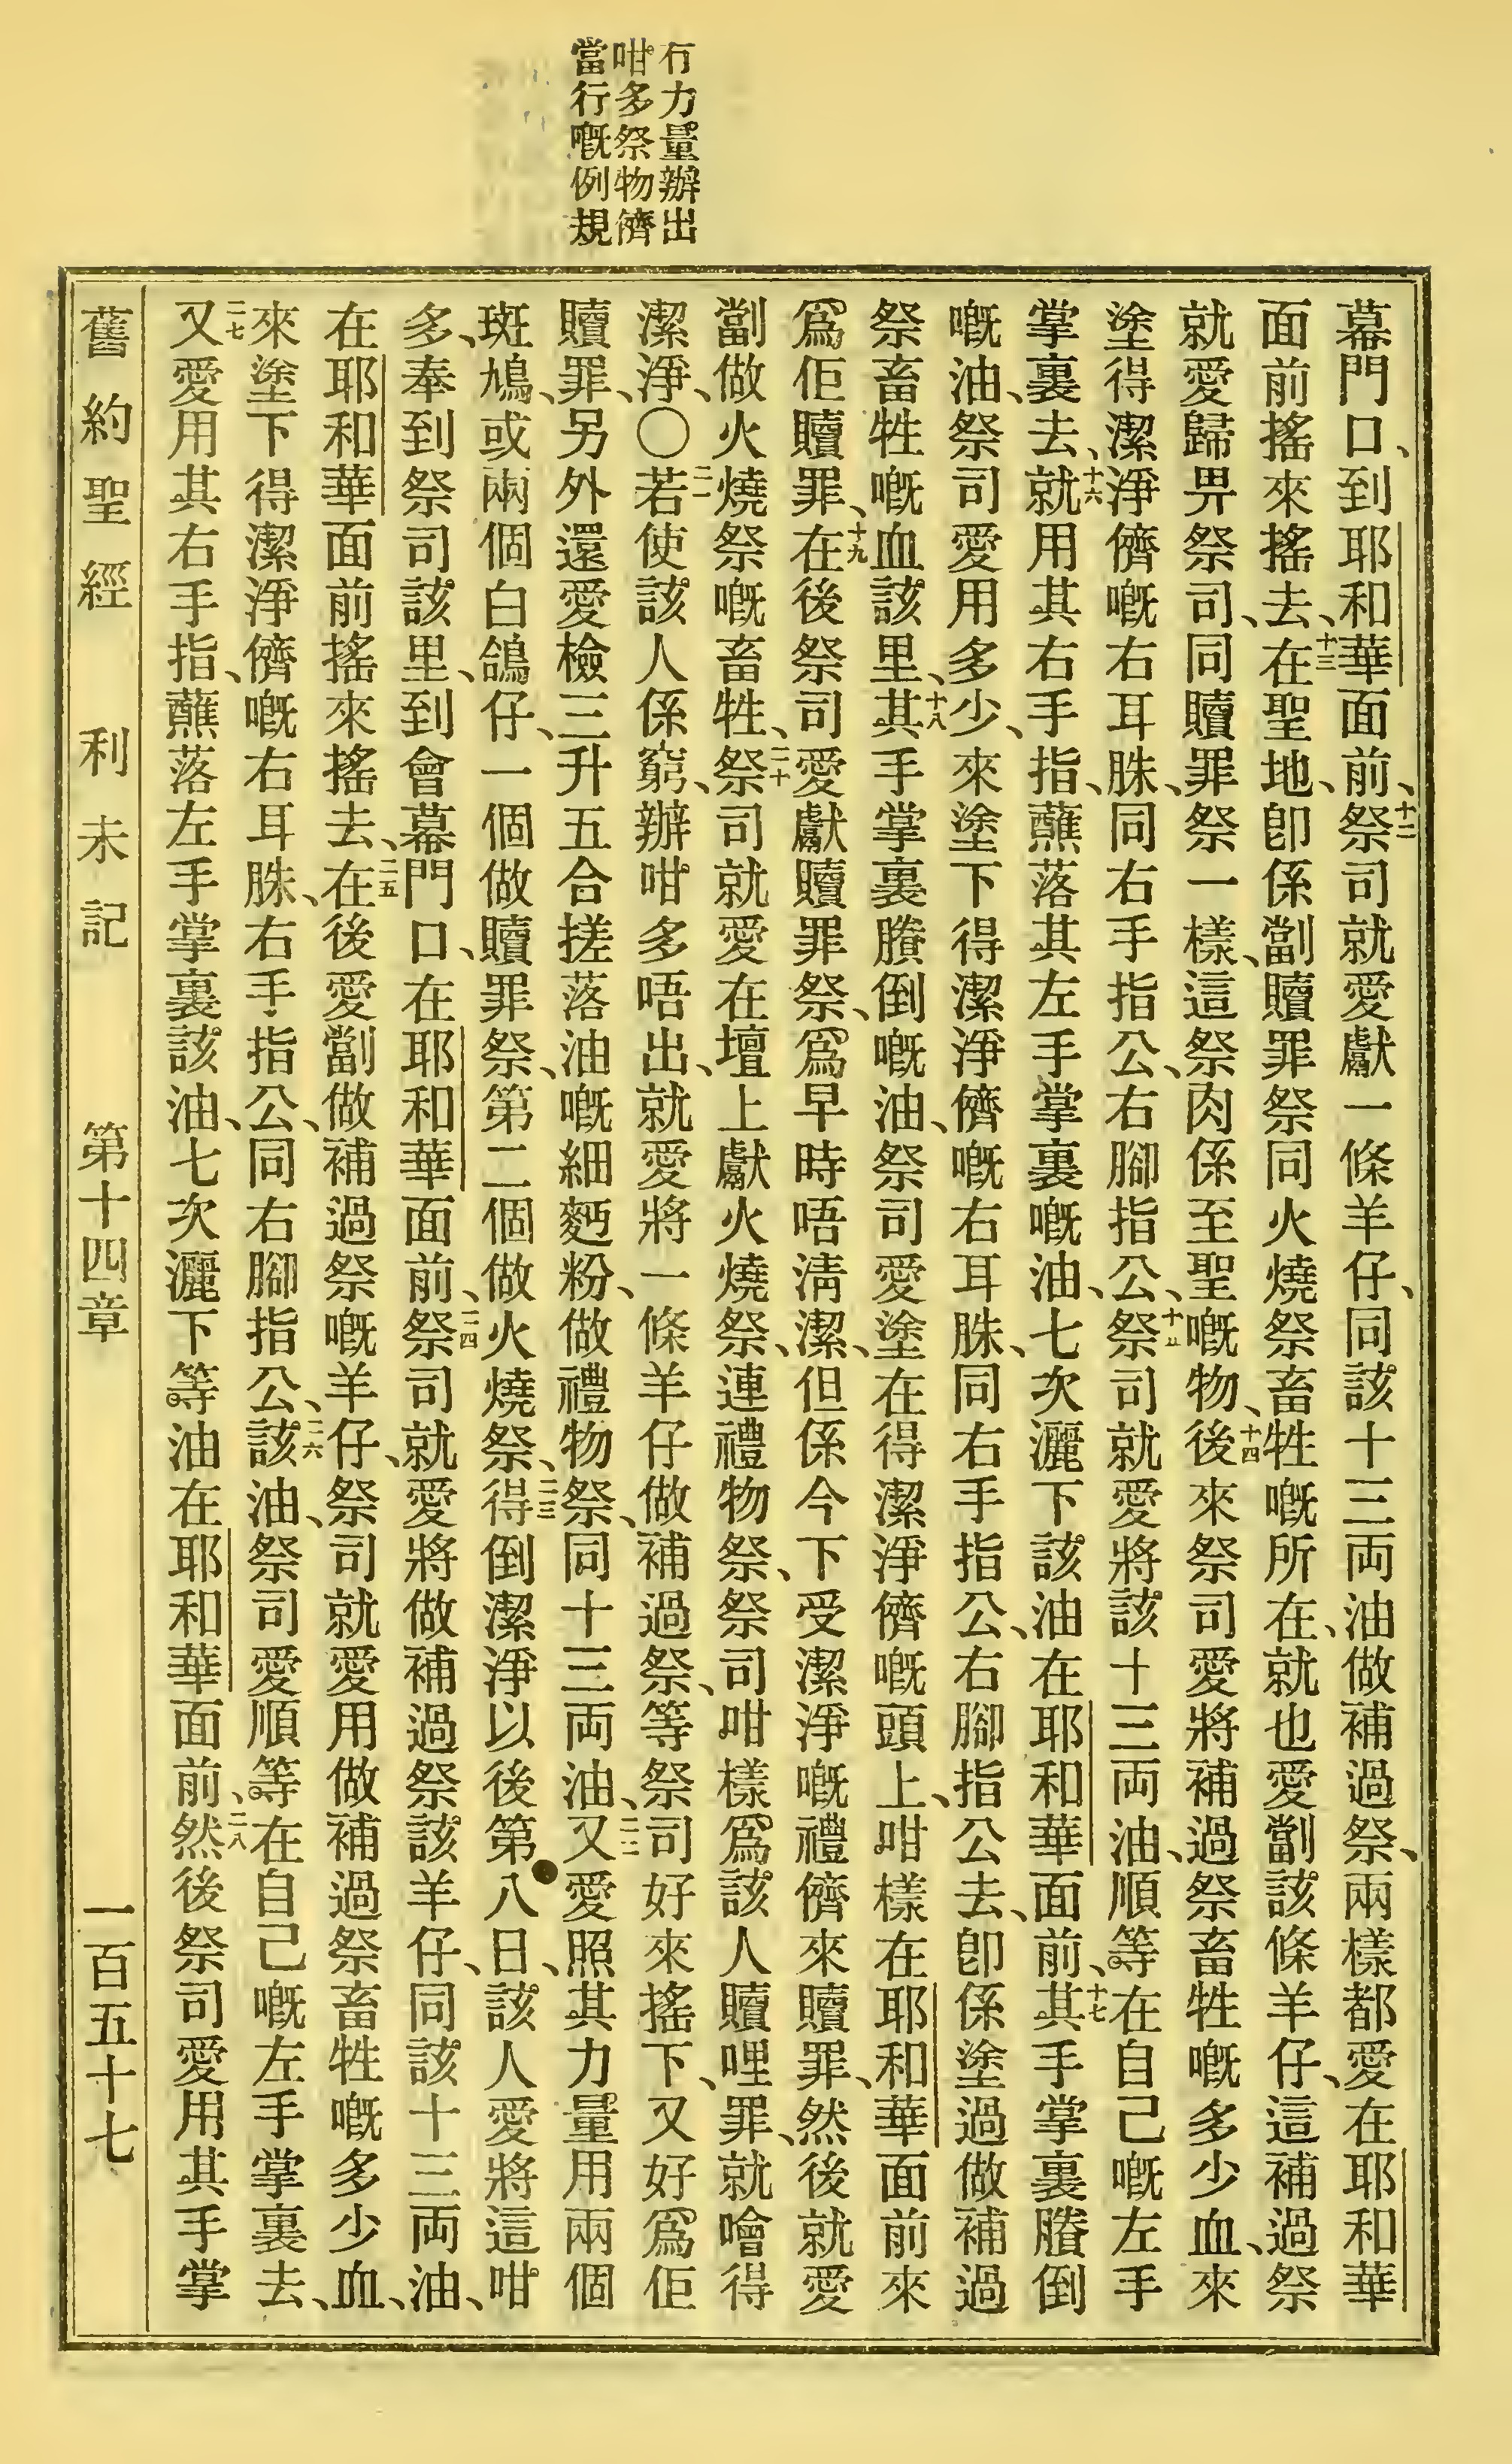 冇力量辦出
咁多祭物儕
當行嘅例規
幕門口、到耶和華面前、十二祭司就愛獻一條羊仔、同該十三両油做補過祭、兩樣都愛在耶和華
面前搖來搖去、十三在聖地、卽係劏贖罪祭同火燒祭畜牲嘅所在、就也愛劏該條羊仔、這補過祭
就愛歸畀祭司、同贖罪祭一樣、這祭肉係至聖嘅物、十四後來祭司愛將補過祭畜牲嘅多少血、來
塗得潔淨儕嘅右耳朥、同右手指公、右腳指公、十五祭司就愛將該十三両油、順等在自己嘅左手
掌裏去、十六就用其右手指、蘸落其左手掌裏嘅油、七次灑下該油在耶和華面前、十七其手掌裏賸倒
嘅油、祭司愛用多少、來塗下得潔淨儕嘅右耳朥、同右手指公、右腳指公去、卽係塗過做補過
祭畜牲嘅血該里、十八其手掌裏賸倒嘅油、祭司愛塗在得潔淨儕嘅頭上、咁樣在耶和華面前來
爲佢贖罪、十九在後祭司愛獻贖罪祭、爲早時唔淸潔、但係今下受潔淨嘅禮儕來贖罪、然後就愛
劏做火燒祭嘅畜牲、二十祭司就愛在壇上獻火燒祭、連禮物祭、祭司咁樣爲該人贖哩罪、就噲得
潔淨、〇二一若使該人係窮、辦咁多唔出、就愛將一條羊仔做補過祭、等祭司好來搖下、又好爲佢
贖罪、另外還愛檢三升五合搓落油嘅細麪粉、做禮物祭、同十三両油、二二又愛照其力量用兩個
斑鳩、或兩個白鴿仔、一個做贖罪祭、第二個做火燒祭、二三得倒潔淨以後第八日、該人愛將這咁
多、奉到祭司該里、到會幕門口、在耶和華面前、二四祭司就愛將做補過祭該羊仔、同該十三両油、
在耶和華面前搖來搖去、二五在後愛劏做補過祭嘅羊仔、祭司就愛用做補過祭畜牲嘅多少血、
來塗下得潔淨儕嘅右耳朥、右手指公、同右腳指公、二六該油、祭司愛順等在自己嘅左手掌裏去、
二七又愛用其右手指、蘸落左手掌裏該油、七次灑下等油在耶和華面前、二八然後祭司愛用其手掌
舊約聖經 利未記 第十四章 一百五十七